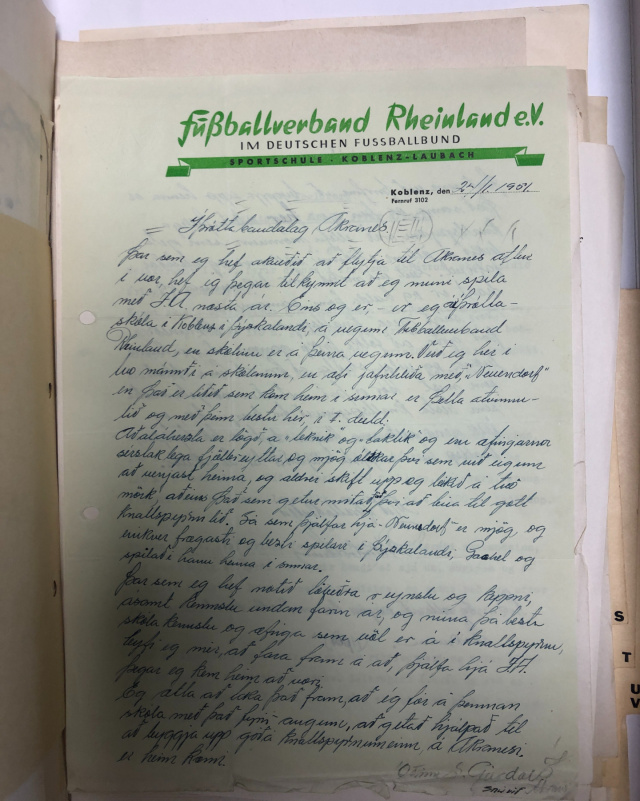 Fußballverband Rheinland e.V.
IM DEUTSCHEN FUSSBALLBUND
SPORTSCHULE · KOBLENZ-LAUBACH
Koblenz, den
1951
Fernruf 3102
Íþróttabandalag Akraness
Þar sem eg hef ákveðið að flytja til Akranes aftur
í vor, hef eg þegar tilkynnt að eg muni spila
með Í.A. næsta ár. Eins og er, er eg á íþrótta-
skóla í Koblenz í Þýskalandi, á vegum Fotballverband
Rheinland, en skólinn er á þeirra vegum. Verð eg hér í
tvo mánuði á skólanum, en æfi jafnhliða með "Neuendorf"
en það er liðið sem kom heim í sumar, er þetta atvinnu-
lið og með þeim bestu hér, í 1. deild.
Aðaláhersla er lögð, á "teknik" og "taktik" og eru æfingarnar
sérstaklega fjölbreyttar, og mjög
að venjast heima, og aldrei skift upp og leikið á tvö
mörk, það sem getur að búa til gott
knattspyrnulið. Sá sem þjálfar hjá "Neuendorf" er mjög og
einhver frægasti og besti spilari í Þýskalandi, og
spilaði hann heima í sumar.
Þar sem eg hef reynslu og keppni,
ásamt kennslu undanfarin ár, og núna þá bestu
skóla kennslu og æfinga sem völ er á í knattspyrnu,
leyfi eg mér, að fara fram á að, þjálfa hjá Í.A.
þegar eg kem heim að vori.
Eg ætla að taka það fram, að eg fór á þennan
skóla með það fyrir augum, að geta hjálpað til
að byggja upp góða knattspyrnumenn á Akranesi
er heim kæmi.
S
T
U
V